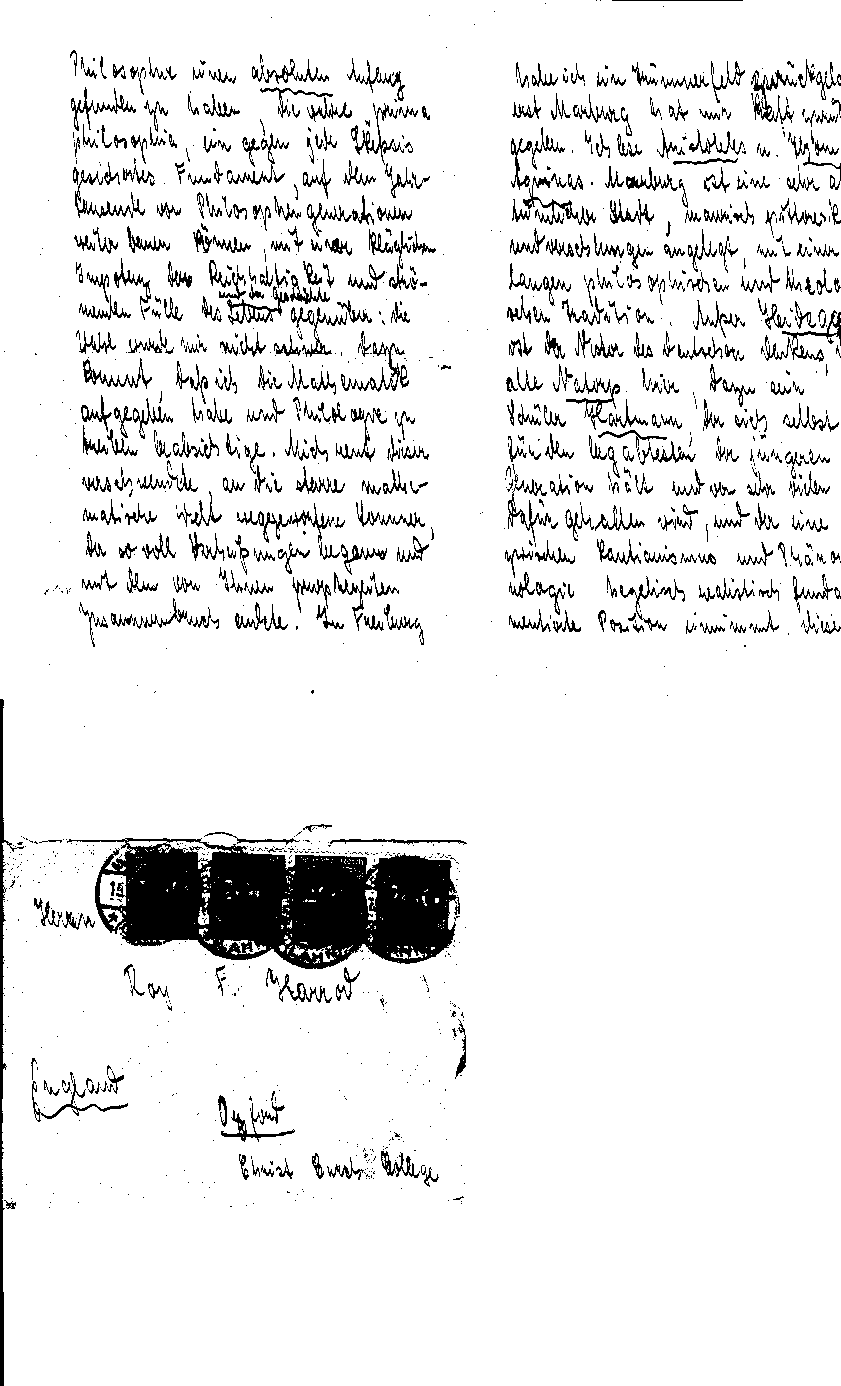 Philosophie einen absoluten Anfang
gefunden zu haben, die wahre prima
philosophia, ein gegen jede Skepsis
gesichertes Fundament, auf dem Jahr-
tausende von Philosophengenerationen
weiter bauen können, mit einer kläglichen
Impotenz der Reichhaltigkeit und strö-
und der Geschichte
menden Fülle des Lebens gegenüber: die
Wahl wurde mir nicht schwer. Dazu
kommt, daß ich die Mathematik
aufgegeben habe und Philologie zu
treiben beabsichtige. Mich reut dieser
verschwendete, an die starre mathe-
matische Welt weggeworfene Sommer,
der so voll Verheißungen begann und
mit dem von Ihnen prophezeiten
Zusammenbruch endete. In Freiburg
habe ich ein Trümmerfeld zurückgela
erst Marburg hat mir Kraft zurü
gegeben. Ich lese Aristoteles u. Thom
Aquinas. Marburg ist eine sehr al
tümliche Stadt, malerisch pittoresk
und verschlungen angelegt, mit einer
langen philosophischen und theolo
schen Tradition. Außer Heidegg
ist der Nestor des deutschen Denkens,
alte Natorp hier, dazu sein
Schüler Hartmann, der sich selbst
für den begabtesten der jüngeren
Generation hält und von sehr vielen
dafür gehalten wird, und der eine
zwischen Kantianismus und Phänom
nologie hegelisch realistisch funda
mentierte Position einnimmt, diese
Herrn
Roy F. Harrod
England
Oxford
Christ Church College